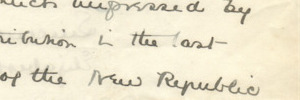 much impressed by
tribution in the last
of the New Republic